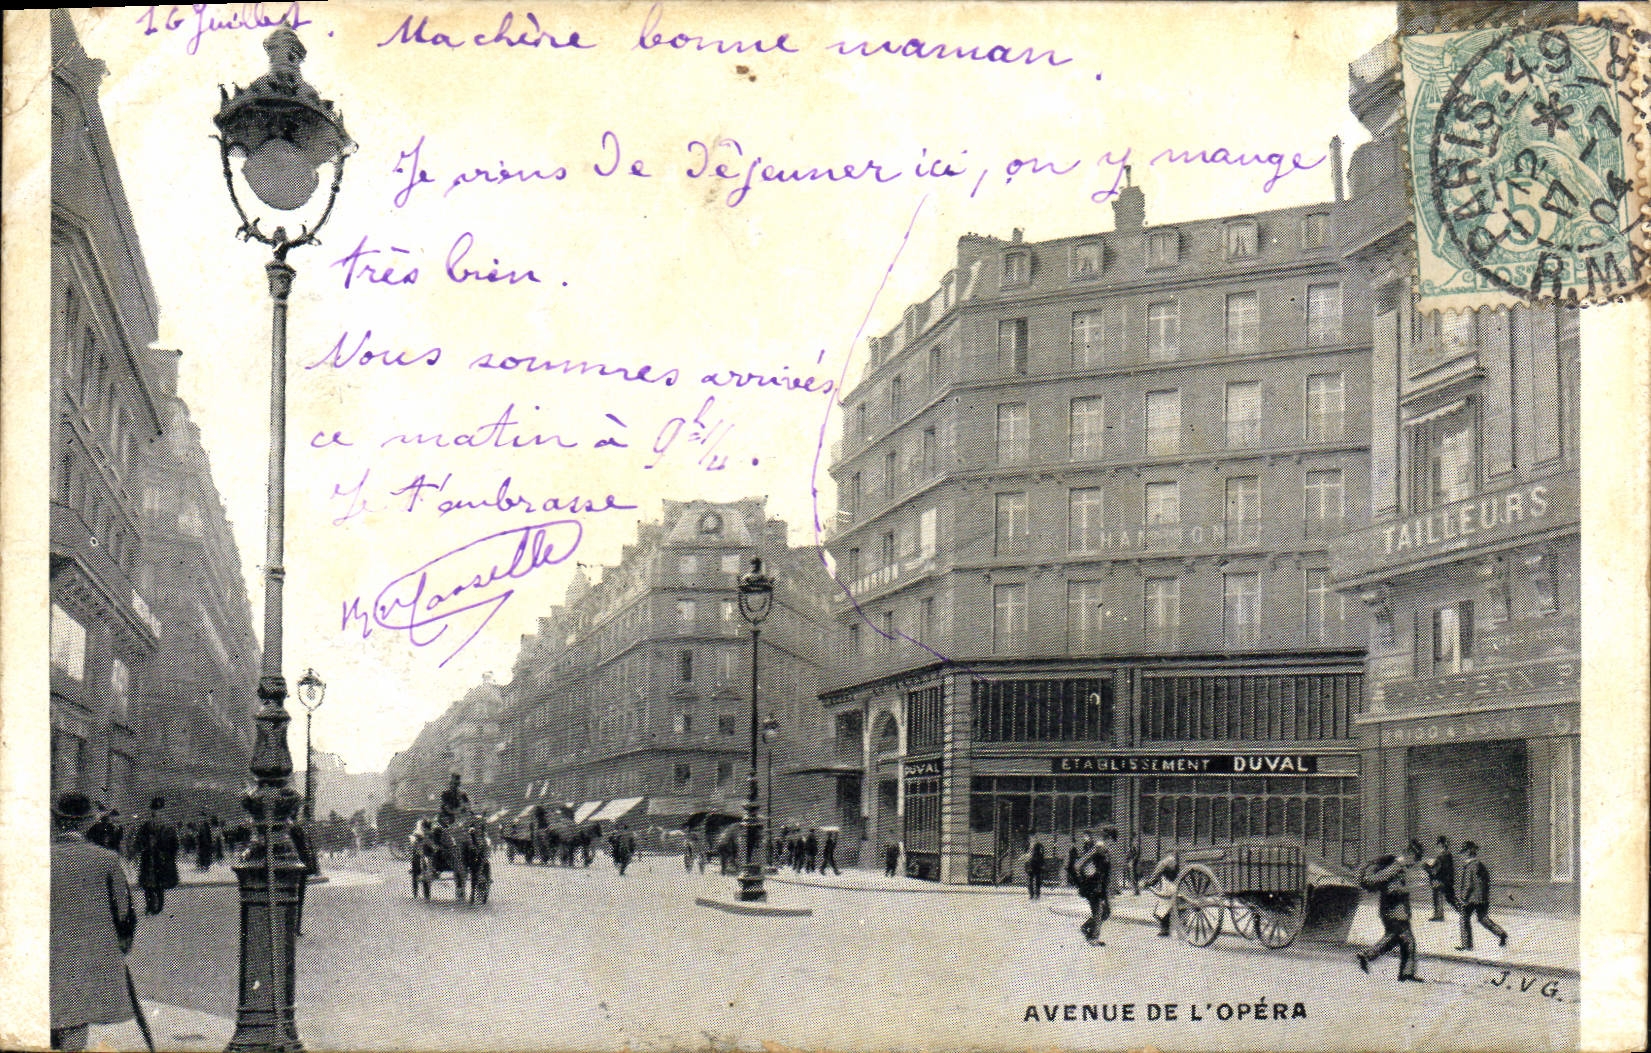 16 Juillet.
Ma chère bonne maman.
Je viens de déjeuner ici, on y mange
très bien.
Nous sommes arrivés
ce matin à 9h 1/4.
Je t'embrasse
PARIS
5
POSTES
TAILLEURS
MODERN
DUVAL
ETABLISSEMENT DUVAL
J.V G.
AVENUE DE L'OPÉRA